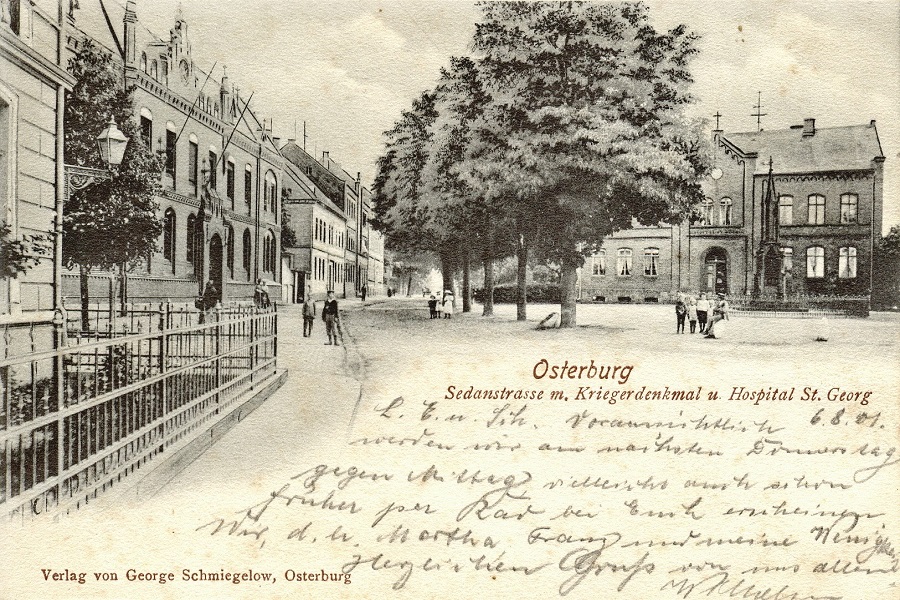 Osterburg
Sedanstrasse m. Kriegerdenkmal u. Hospital St. Georg
L. E. u. Sch. Voraussichtlich 6.8.01.
werden wir am nächsten Donnerstag
gegen Mittag vielleicht auch schon
früher per Rad bei Euch erscheinen
Wir, d. h. Martha Franz und meine Wenigkeit
Herzlichen Gruß von uns allen
Verlag von George Schmiegelow, Osterburg